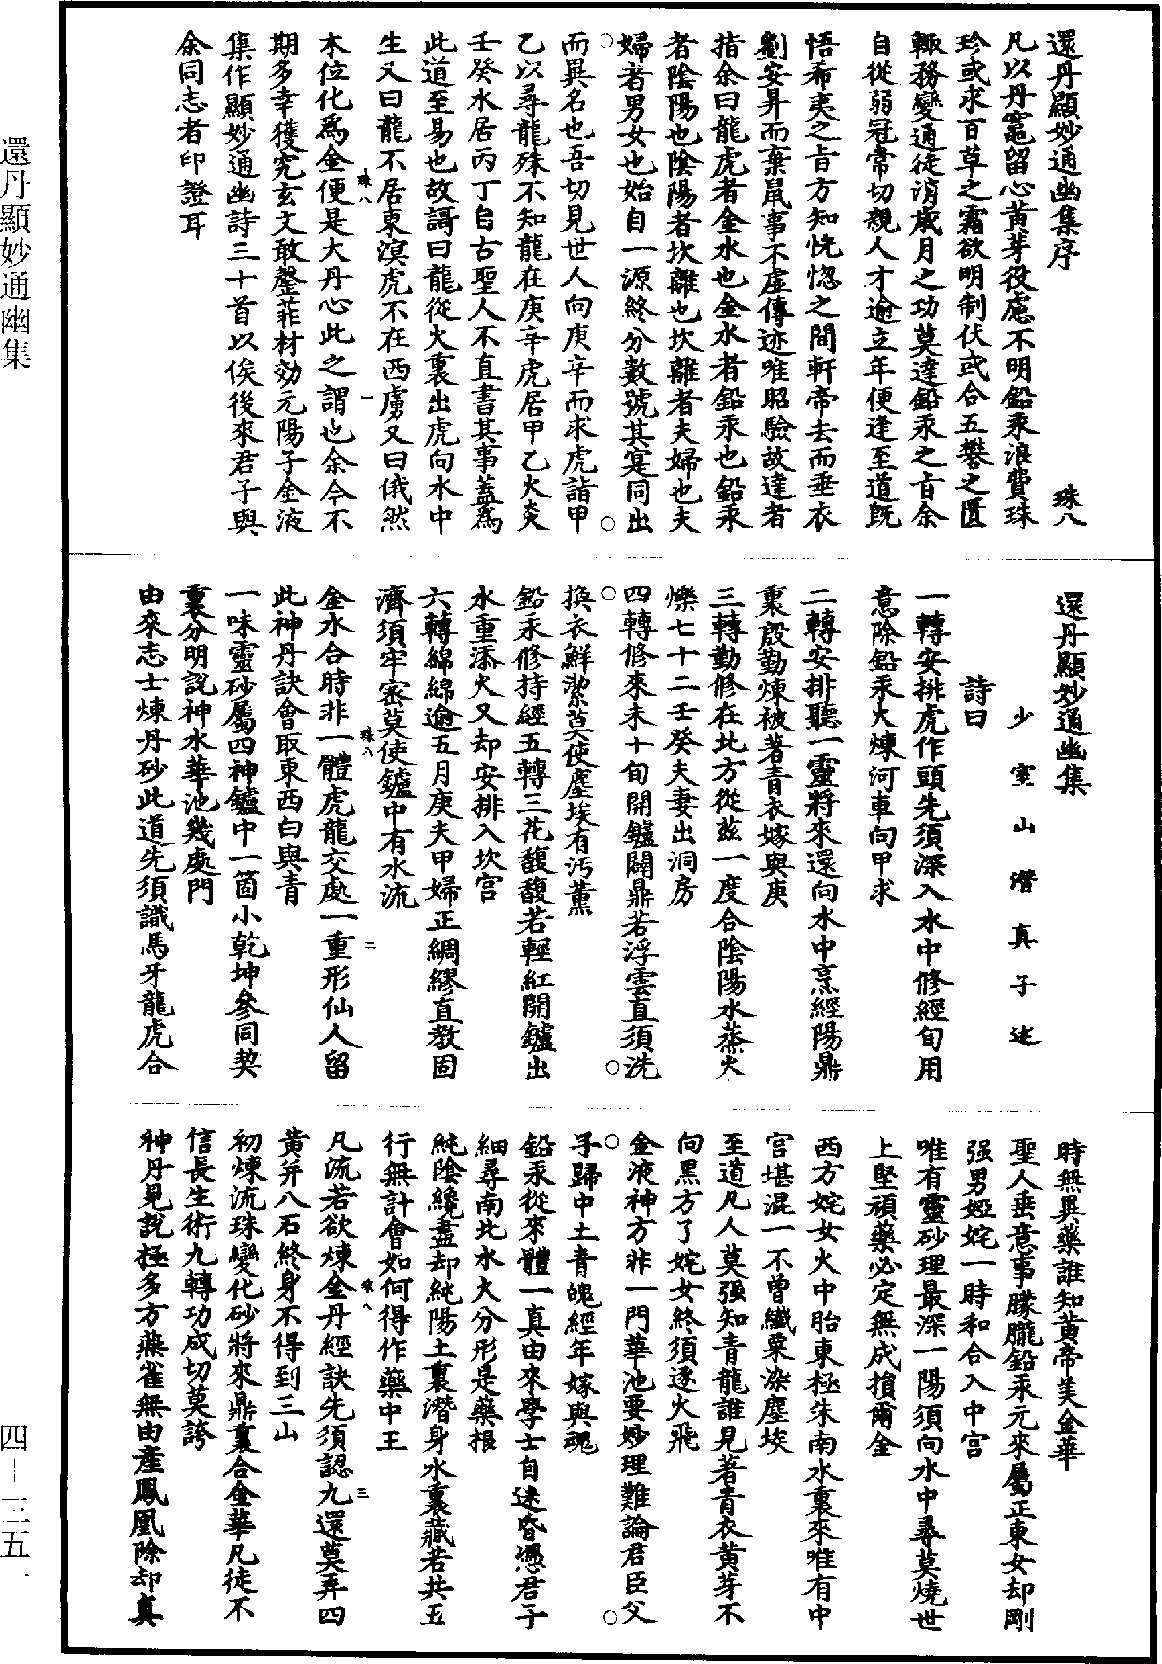 還丹顯妙通幽集序
珠八
凡以丹竈留心黃芽役慮不明鉛汞浪費珠
珍或求百草之霜欲明制伏或合五礬之匱
輙務變通徒消歲月之功莫達鉛汞之旨余
自從弱冠常切親人才逾立年便逢至道既
悟希夷之旨方知恍惚之間軒帝去而垂衣
劉安昇而棄鼠事不虛傳迹唯昭驗故達者
指余曰龍虎者金水也金水者鉛汞也鉛汞
者陰陽也陰陽者坎離也坎離者夫婦也夫
婦者男女也始自一源終分數號其寔同出
而異名也吾切見世人向庚辛而求虎詣甲
乙以尋龍殊不知龍在庚辛虎居甲乙火炎
壬癸水居丙丁自古聖人不直書其事蓋爲
此道至易也故謌曰龍從火裏出虎向水中
生又曰龍不居東溟虎不在西虜又曰俄然
珠八
一
本位化爲金便是大丹心此之謂也余今不
期多幸獲究玄文敢罄菲材効元陽子金液
集作顯妙通幽詩三十首以俟後來君子與
余同志者印證耳
還丹顯妙通幽集
少室山潛真子述
詩曰
一轉安排虎作頭先須深入水中修經旬用
意除鉛汞火煉河車向甲求
二轉安排聽一靈將來還向水中烹經陽鼎
裏殷勤煉被著青衣嫁與庚
三轉勤修在北方從茲一度合陰陽水蒸火
爍七十二壬癸夫妻出洞房
四轉修來未十旬開鑪闢鼎若浮雲直須洗
換衣鮮潔莫使塵埃有汚薰
鉛汞修持經五轉三花馥馥若輕紅開鑪出
水重添火又却安排入坎宮
六轉綿綿逾五月庚夫甲婦正綢繆直教固
濟須牢密莫使鑪中有水流
珠八
二
金水合時非一體虎龍交處一重形仙人留
此神丹訣會取東西白與青
一味靈砂屬四神鑪中一箇小乾坤參同契
裏分明說神水華池幾處門
由來志士煉丹砂此道先須識馬牙龍虎合
時無異藥誰知黃帝美金華
聖人垂意事朦朧鉛汞元來屬正東女却剛
强男婭姹一時和合入中宮
唯有靈砂理最深一陽須向水中尋莫燒世
上堅頑藥必定無成損爾金
西方姹女火中胎東極朱南水裏來唯有中
宮堪混一不曾纖粟染塵埃
至道凡人莫强知青龍誰見著青衣黃芽不
向黑方了姹女終須逐火飛
金液神方非一門華池要妙理難論君臣父
子歸中土青魄經年嫁與魂
鉛汞從來體一真由來學士自迷昏憑君子
細尋南北水火分形是藥根
純陰纔盡却純陽土裏潛身水裏藏若共五
行無計會如何得作藥中王
珠八
三
凡流若欲煉金丹經訣先須認九還莫弄四
黃幷八石終身不得到三山
初煉流珠變化砂將來鼎裏合金華凡徒不
信長生術九轉功成切莫誇
神丹見說極多方燕雀無由產鳳凰除却真
還丹顯妙通幽集
四—三五一